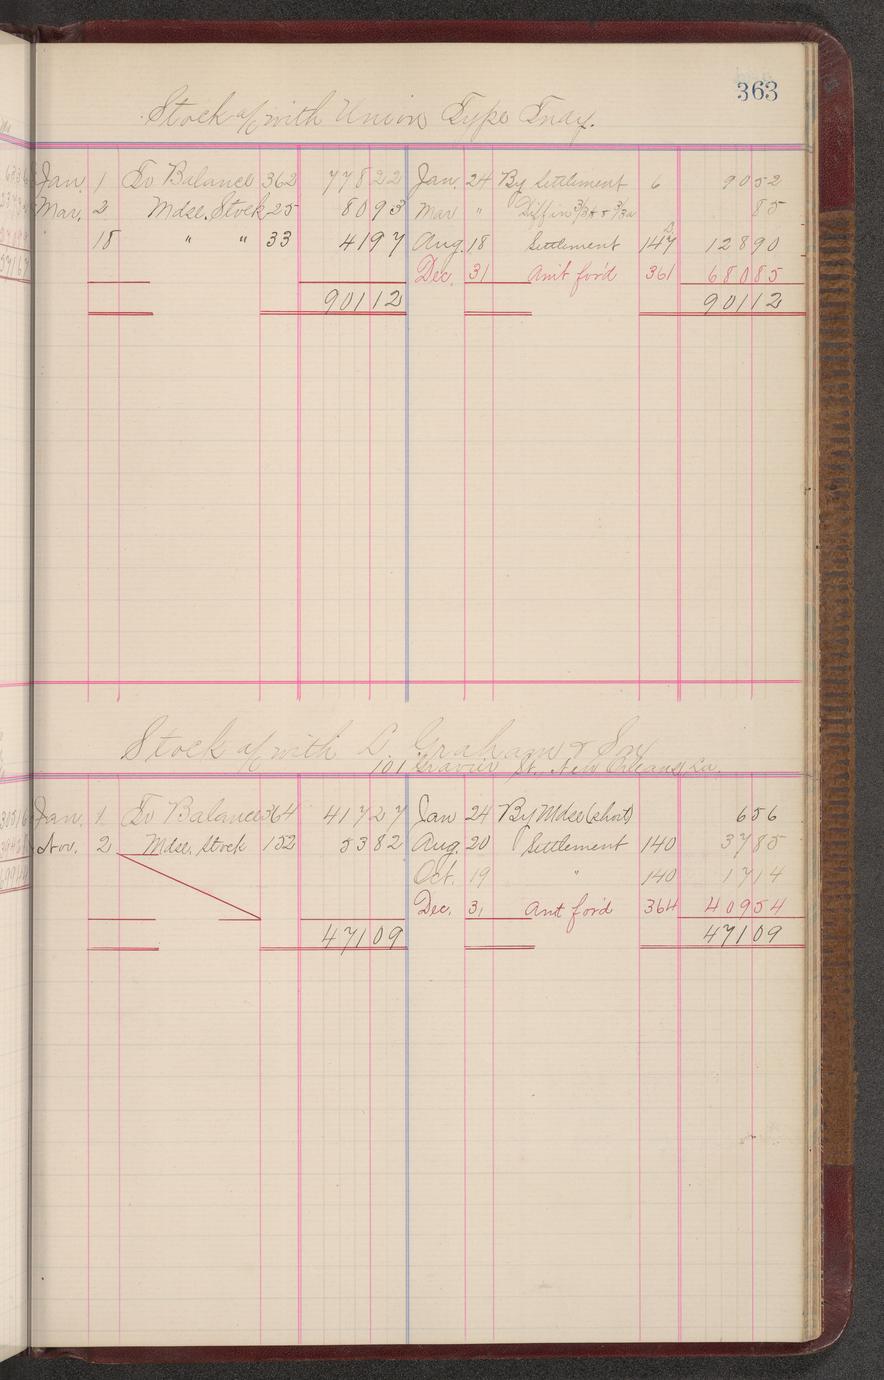 363
Stock a/c with Union Type Fndy.
Jan. 1 To Balance 362 77822 Jan. 24 By Settlement 6 9052
Mar. 2 Mdse. Stock 25 8093 Mar " Diff in 85
18 " " 33 4197 Aug. 18 Settlement 147 12890
Dec. 31 Am't for'd 361 68085
90112 90112
Stock a/c with L. Graham & Son
101 Gravier St. New Orleans, La.
Jan. 1 To Balance 364 41727 Jan 24 By Mdse (short) 656
Nov. 2 Mdse. Stock 152 5382 Aug. 20 Settlement 140 3785
Oct. 19 " 140 1714
Dec. 31 Amt for'd 364 40954
47109 47109